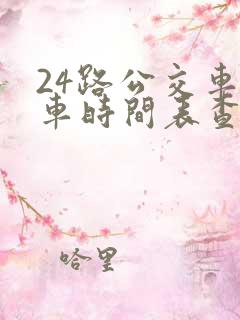 24路公交車
車時間表查
哈里